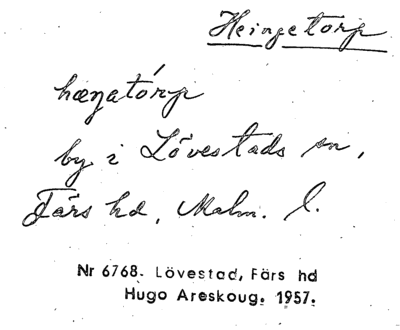 Heingetorp
hæŋatórp
by i Lövestads sn,
Färs hd, Malm. l.
Nr 6768. Lövestad, Färs hd
Hugo Areskoug. 1957.